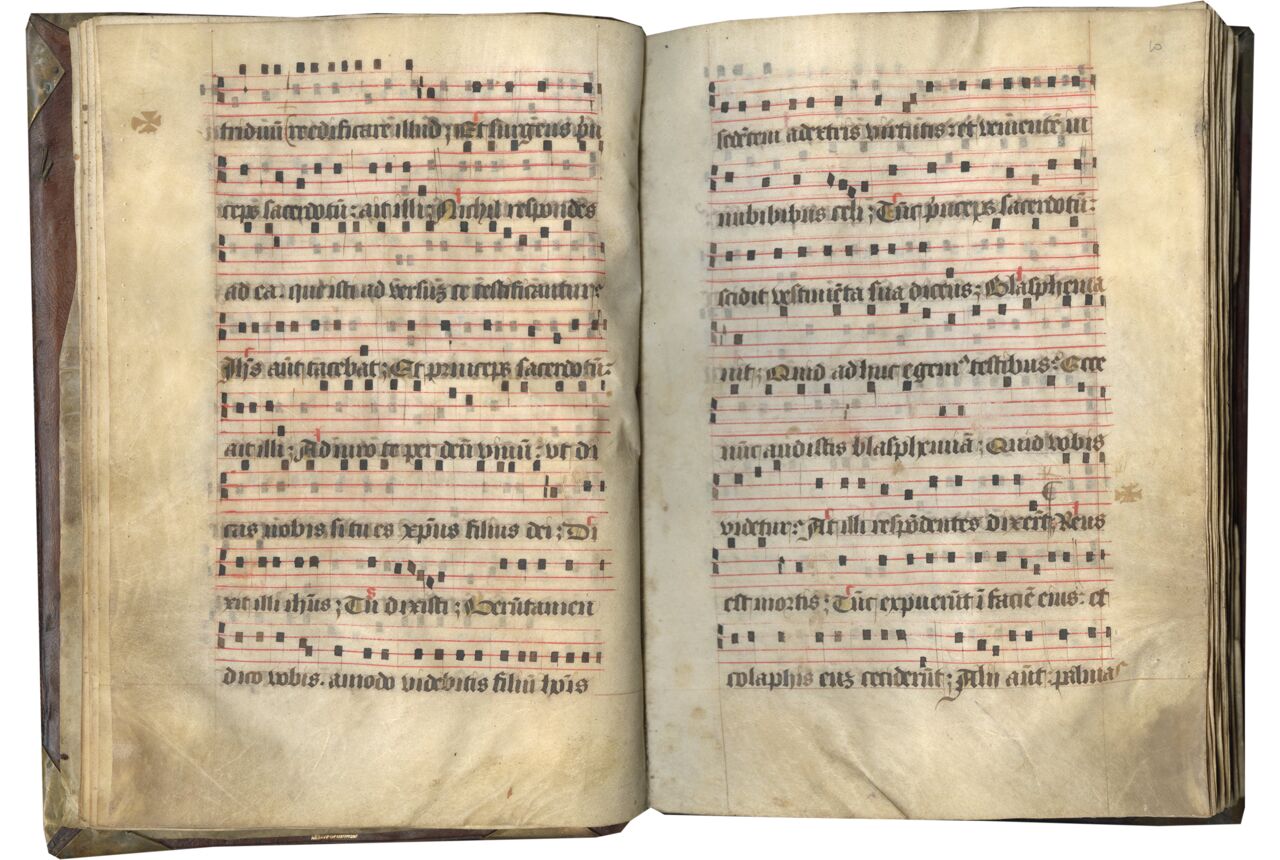 triduū reedificare illud; Et surgens pͥn
ceps sacerdotū: ait illi: Nichil respondes
ad ea. que isti ad versuꝫ te testificantur:
Ihs̄ aūt tacebat; Et princeps sacerdotū:
ait illi; Adiuro te per deū vivū: ut di
cas nobis si tu es xp̄us filius dei; Di
xit illi ih̄us; Tu dixisti; Verūtamen
dico vobis. amodo videbitis filiū hoı̄s
sedētem a dextris virtutis: et veniētē in
nubibibus celi; Tūc pͥnceps sacerdotū:
scidit vestimēta sua dicens; Blasphema
uit; Quid ad huc egemꝰ testibus: Ecce
nūc audistis blasphemiā; Quid vobis
videtur: At illi respōdentes dixerūt; Reus
est mortis; Tūc expuerūt ī faciē eius: et
colaphis euꝫ ceciderūt; Alii aūt: palmas